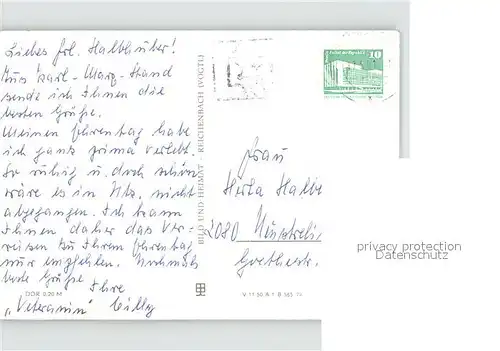 Liebes Frl. Halbhuber!
Aus Karl-Marx-Stadt
sende ich Ihnen die
besten Grüße.
Meinen Ehrentag habe
ich ganz prima verlebt.
So ruhig u. doch schön
wäre es in Ntz. nicht
abgegangen. Ich kann
Ihnen daher das Ver-
reisen zu Ihrem Ehrentag
nur empfehlen. Nochmals
beste Grüße Ihre
„Veteranin"
DDR 0,20 M
BILD UND HEIMAT · REICHENBACH (VOGTL)
V 11 50 A 1 B 165
10
Frau
Herta Halb
2080 Neustreli
Goethestr.
privacy protection
Datenschutz